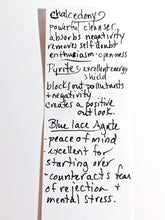 Chalcedony
powerful cleanser,
absorbs negativity
removes self doubt
enthusiasm - openness
Pyrite - excellent energy
shield
blocks out pollutants
+ negativity
creates a positive
outlook.
Blue lace Agate
- peace of mind
- excellent for
starting over
- counteracts fear
of rejection +
mental stress.